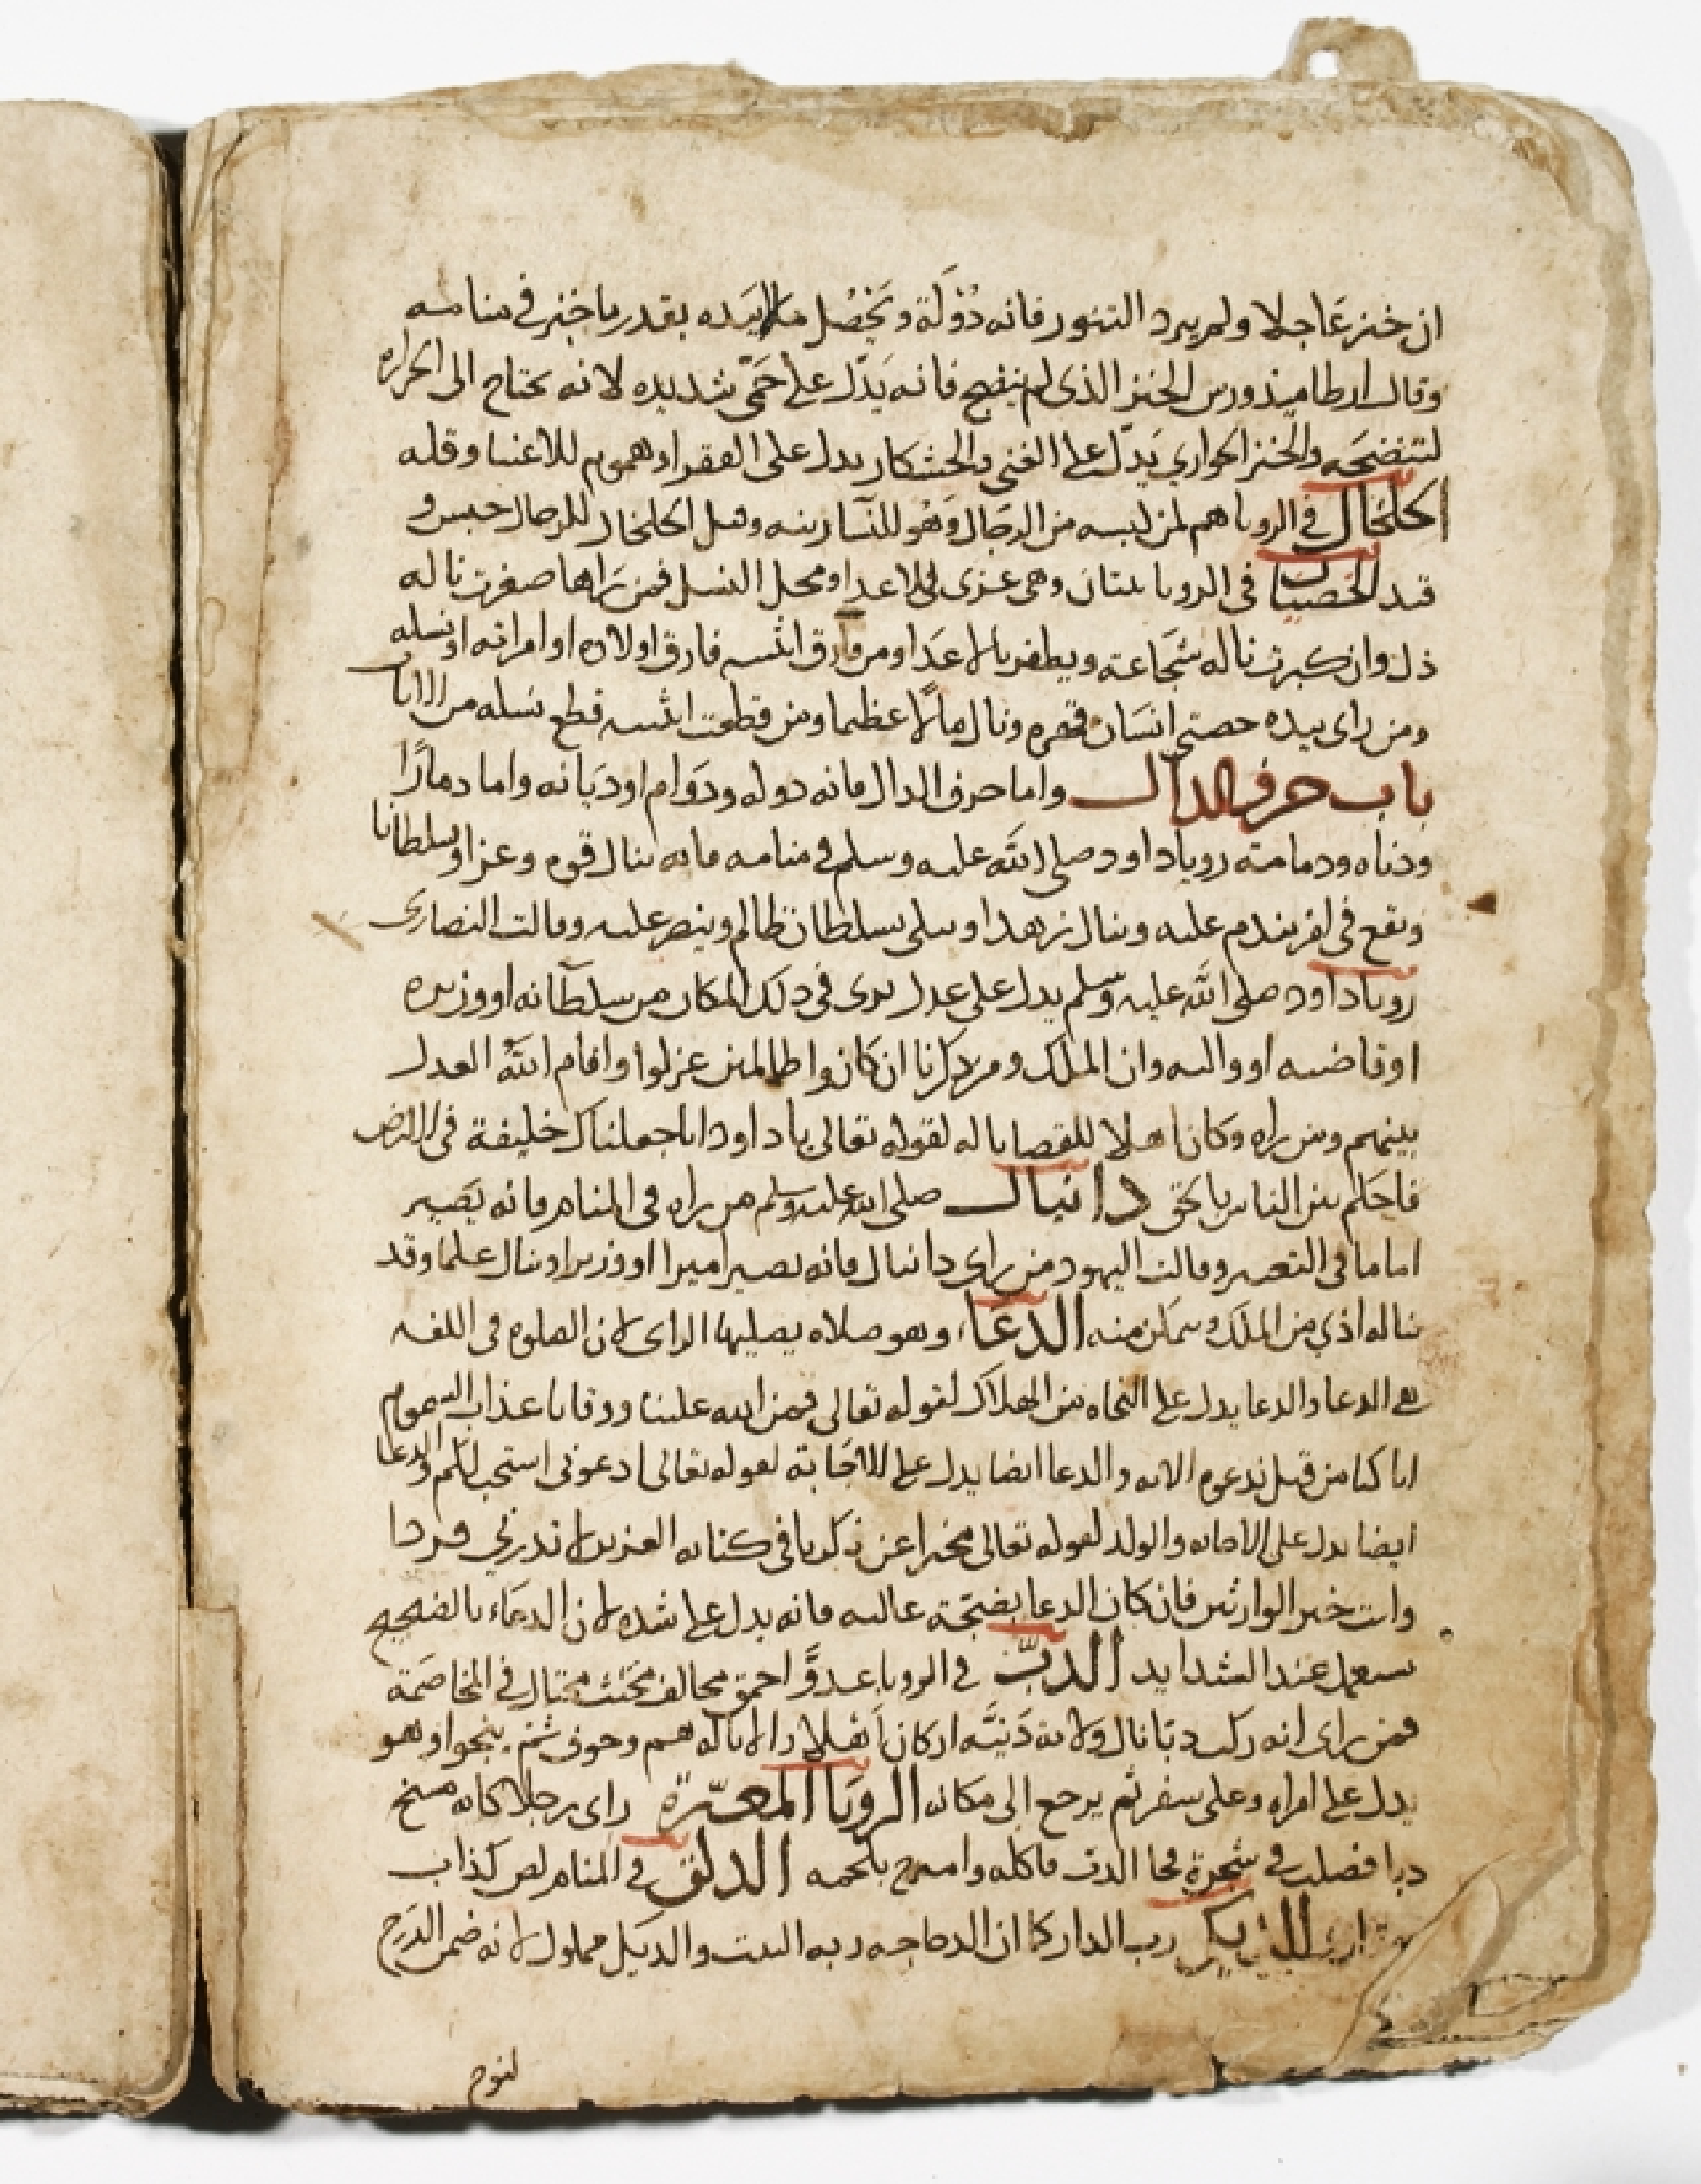 ان خبز عاجلا ولم يبرد التنور فانه دُوْلَة وتحْصُل مالا بيَده بقدر ما خبز في منامه
وقال ارطاميدورس الخبز الذى لم ينضج فانه يَدّل على حمّى شديده لانه يحتاج الى الحراره
لتنضجَه والخبز الحواري يَدّل على الغنى والخشكار يدل على الفقر او هموم للاغنيا وقله
الخلخال في الرويا هم لمن لبسه من الرجَال وَهْو للنسا زينه وقيل الخلخال للرجال حبس و
قيد الخصيتان في الرويا بنتان وهى عرى للاعدا ومحل النسل فمن رَاها صغرت ناله
ذل وان كبرت ناله شجَاعته ويظفر بالاعدَا ومن فارق انثيه فارق اولاده او امراته او نسله
ومن راى بيده خصيتي انسَان قهره ونال مالًا عظيما ومن قطعت انثييه قطع نسله من الاناث
باب حرف الدال واما حرف الدال فانه دوله ودوَام او ديَانه واما دمارًا
ودناه ودمامته رويا داود صلى الله عليه وسلم في منامه فانه ينال قوه وعزا وسلطانا
ويقع في امر يندم عليه وينال زهدا ويبلى بسلطان ظالم وينصر عليه وقالت النصارى
رويا داود صلى الله عليه وسلم يدل على عدل يرى في ذلك المكان من سلطانه او وزيره
او قاضيه او واليه وان الملك ومن ذكرنا ان كانوا ظالمين عزلوا واقام الله العدل
بينهم ومن راه وكان اهلا للقضا ناله لقوله تعالى يا داود انا جعلناك خليفة في الارض
فاحكم بين الناس بالحق دانيال صلى الله عليه وسلم من راه في المنام فانه يَصير
اماما في التعبير وقالت اليهود من راى دانيال فانه يصير اميرا او وزيرا وينال علما وقد
يناله اذي من الملك ويتمكن منه الدعاء وهو صلاه يصليها الراى لان الصلوه في اللغه
هى الدعا والدعا يدل على النجاه من الهلاك لقوله تعالى فمن الله علينا ووقانا عذاب السموم
انا كنا من قبل ندعوه الايه والدعا ايضا يدل على الاجَابة لقوله تعالى ادعونى استجب لكم والدعا
ايضا يدل على الامانه والولد لقوله تعالى مخبرا عن زكريا في كتابه العزيز لا تذرني فردا
وانت خير الوارثين فان كان الدعا بضجّة عاليه فانه يدل على شده لان الدعَاء بالضجيج
يستعمل عند الشدايد الدبّ في الرويا عدوَّ احمق مخالف مخنث محتال في المخاصَمة
فمن راى انه ركب دبّا نال ولايه دَنيَّه ان كان اَهْلا والا ناله هم وخوف ثم ينجوا وهو
يدل على امراه وعلى سفر ثم يرجع الى مكانه الرويَا المعبّرة راى رجلا كانه مسخ
دبا فصلب في شجرة فجا الدب فاكله بلحمه الدلق في المنام لص كذاب
رب الدار كما ان الدجاجه ربه البيت والديك مملوك لانه ضمن الدرج
لنوح